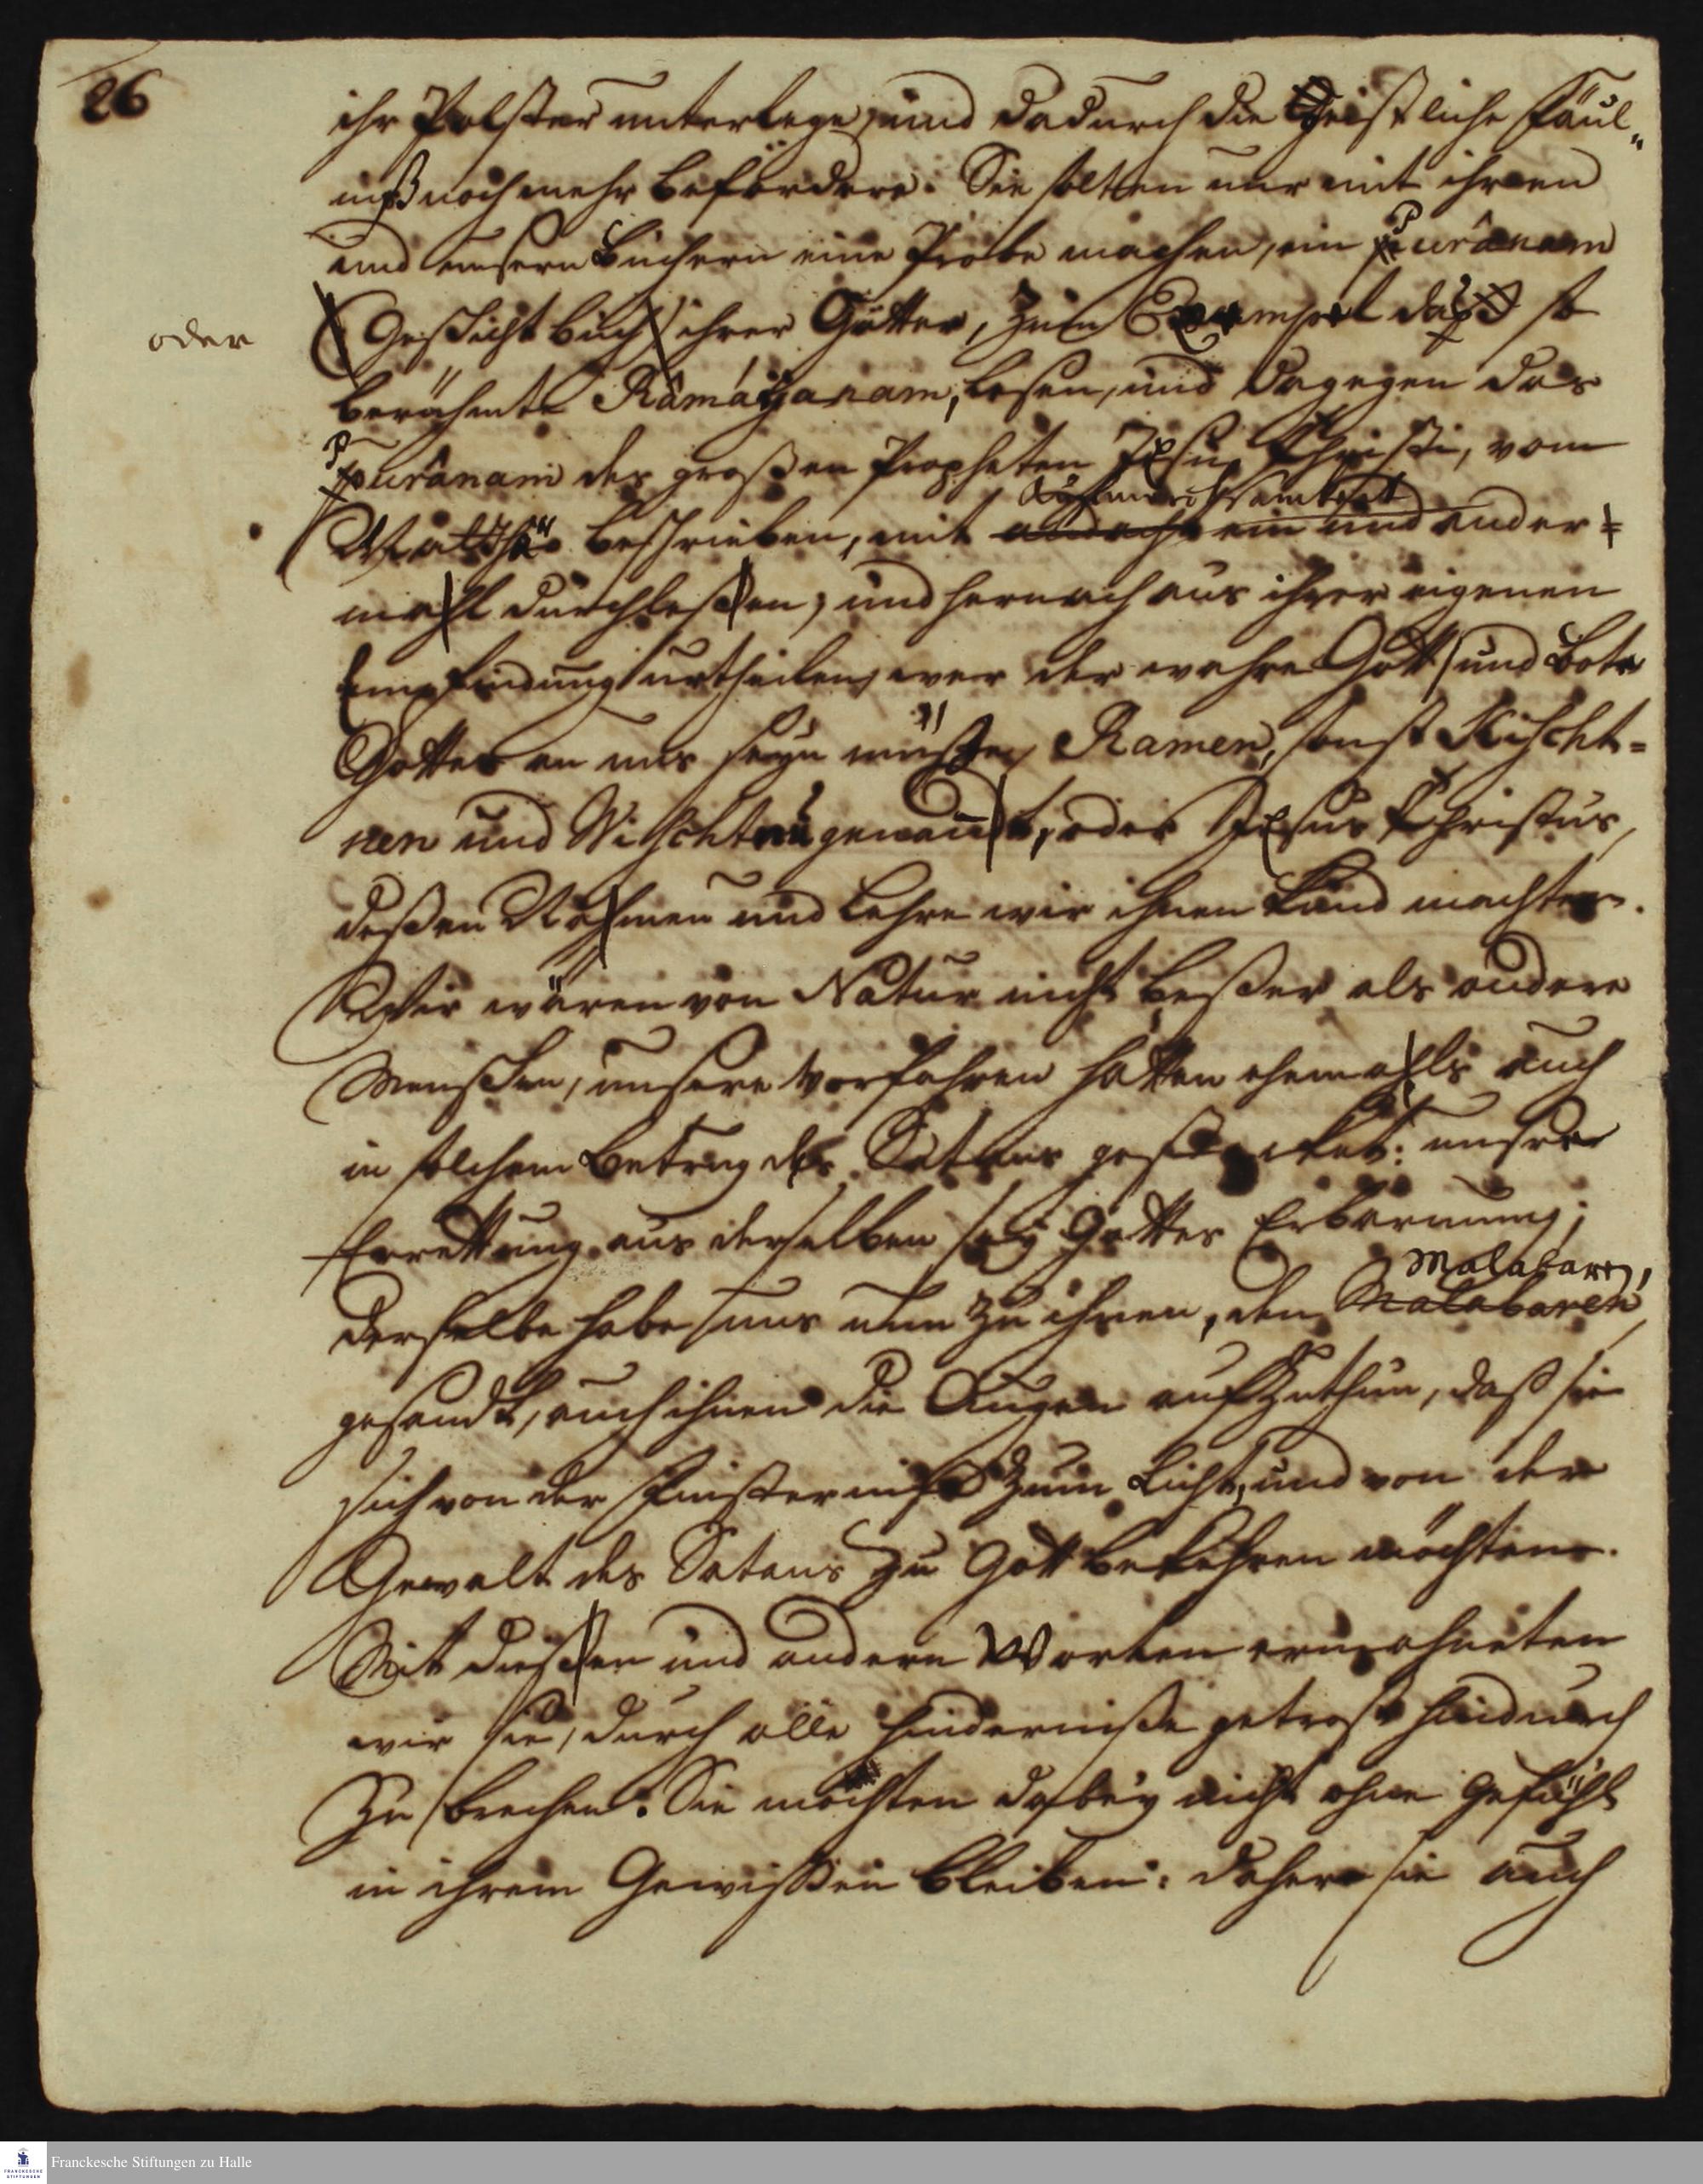 26
ihr Polster unterlege, und dadurch die Geistliche Fäul„
niß noch mehr befördere. Sie solten nur mit ihren
und unsern Büchern eine Probe machen, ein Purânam
oder
(Geschicht buch) ihrer Götter, zum Exempel das so
berühmte Râmáyanam, lesen, und dagegen das
Purânam des großen Propheten JEsu Christi, vom
Aufmercksamkeit
Matthäo beschrieben, mit andacht ein und ander=
mahl durchlesen, und hernach aus ihrer eigenen
Empfindung urtheilen, wer der wahre Gott und Bote
Gottes an uns seyn müste, Ramen, sonst Kischt=
nen und Wischtnu genant, oder JEsus Christus,
deßen Nahmen und Lehre wir ihnen kund machten.
Wir wären von Natur nicht beßer als andere
Menschen, unsere Vorfahren hätten ehemahls auch
in solchem Betrug des Satans gestecket: unsere
Errettung aus derselben sey Gottes Erbarmung;
Malabaren,
derselbe habe uns nun zu ihnen, den Malabaren
gesandt, auch ihnen die Augen aufzuthun, daß sie
sich von der Finsterniß zum Licht, und von der
Gewalt des Satans zu Gott bekehren möchten.
Mit diesen und andern Worten ermahneten
wir sie, durch alle Hinderniße getrost hindurch
zu brechen. Sie mochten dabey nicht ohne Gefühl
in ihrem Gewißen bleiben: daher sie auch
Franckesche Stiftungen zu Halle
FRANCKESCHE
STIFTUNGEN